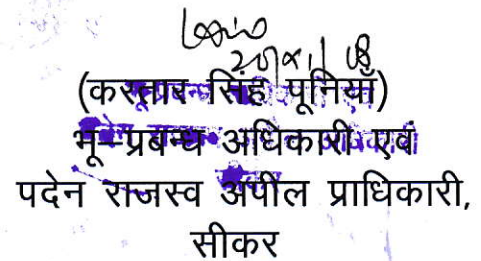 (करतार सिंह पूनियाँ)
भू-प्रबन्ध अधिकारी एवं
पदेन राजस्व अपील प्राधिकारी,
सीकर